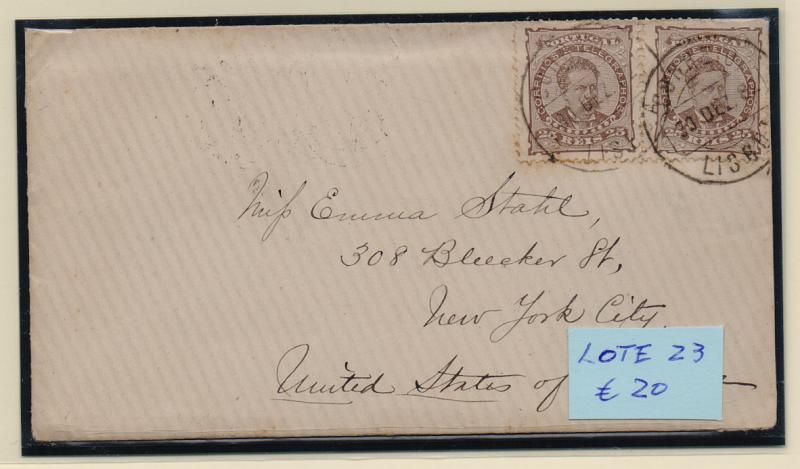 PORTUGAL PORTUGAL
CORREIOS E TELEGRAPHOS CORREIOS E TELEGRAPHOS
25 REIS 25 25 REIS 25
30 DEZ
LIS LISB
Miss Emma Stahl,
308 Bleecker St,
New York City.
United States of
LOTE 23
€ 20